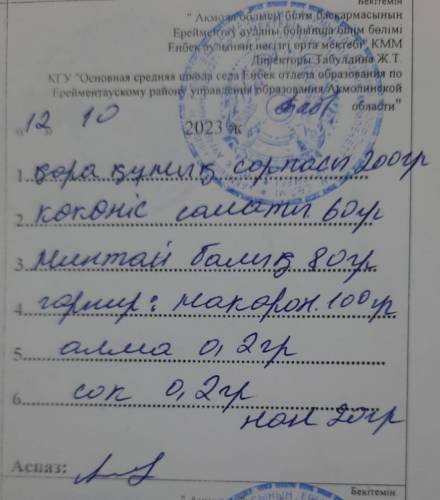 Бекітемін
" Ақмола облысы білім басқармасының
Ерейментау ауданы бойынша білім бөлімі
Еңбек ауылының негізгі орта мектебі" КММ
Директоры Табулдина Ж.Т.
КГУ "Основная средняя школа села Енбек отдела образования по
Ерейментаускому району управления образования Акмолинской
области"
"12" 10 2023 ж
1. қара құмық сорпасы 200гр
2. көкөніс салаты 60гр
3. минтай балық 80гр
4. гарнир: макарон. 100гр
5. алма 0,2гр
6. сок 0,2гр
нан 20гр
Аспаз:
Бекітемін